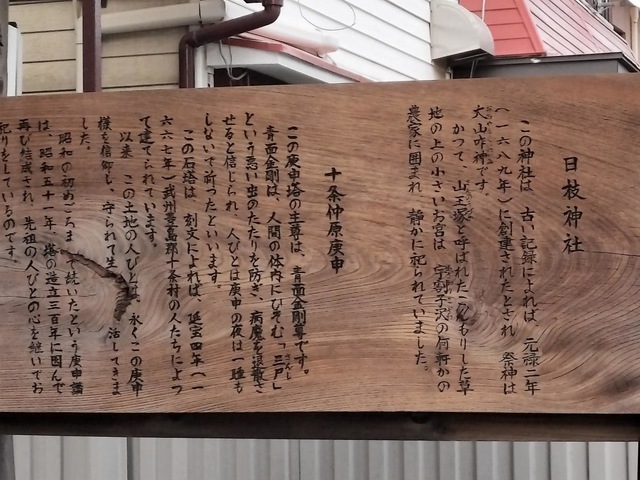 日枝神社
この神社は、古い記録によれば、元禄二年
(一六八九年)に創建されたとされ、祭神は
大山咋神です。
かつて、山王塚と呼ばれたこんもりした草
地の上の小さいお宮は、字割子沢の何軒かの
農家に囲まれ、静かに祀られていました。
十条仲原庚申
この庚申塔の主尊は、青面金剛尊です。
青面金剛は、人間の体内にひそむ「三尸」
さんし
という悪い虫のたたりを防ぎ、病魔を退散さ
せると信じられ、人びとは庚申の夜は一睡も
しないで祈ったといいます。
この石塔は、刻文によれば、延宝四年(一
六六七年)武州豊島郡十条村の人たちによっ
て建てられています。
以来、この土地の人びとは、永くこの庚申
様を信仰し、守られて生活してきま
した。
昭和の初めごろまで続いたという庚申講
は、昭和五十一年、塔の造立三百年に因んで
再び結成され、先祖の人びとの心を継いでお
祀りをしているのです。